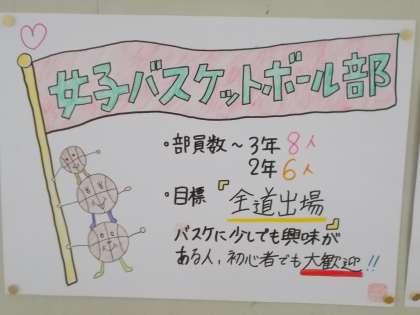 女子バスケットボール部
・部員数～3年8人
2年6人
・目標『全道出場』
バスケに少しでも興味が
ある人、初心者でも大歓迎!!